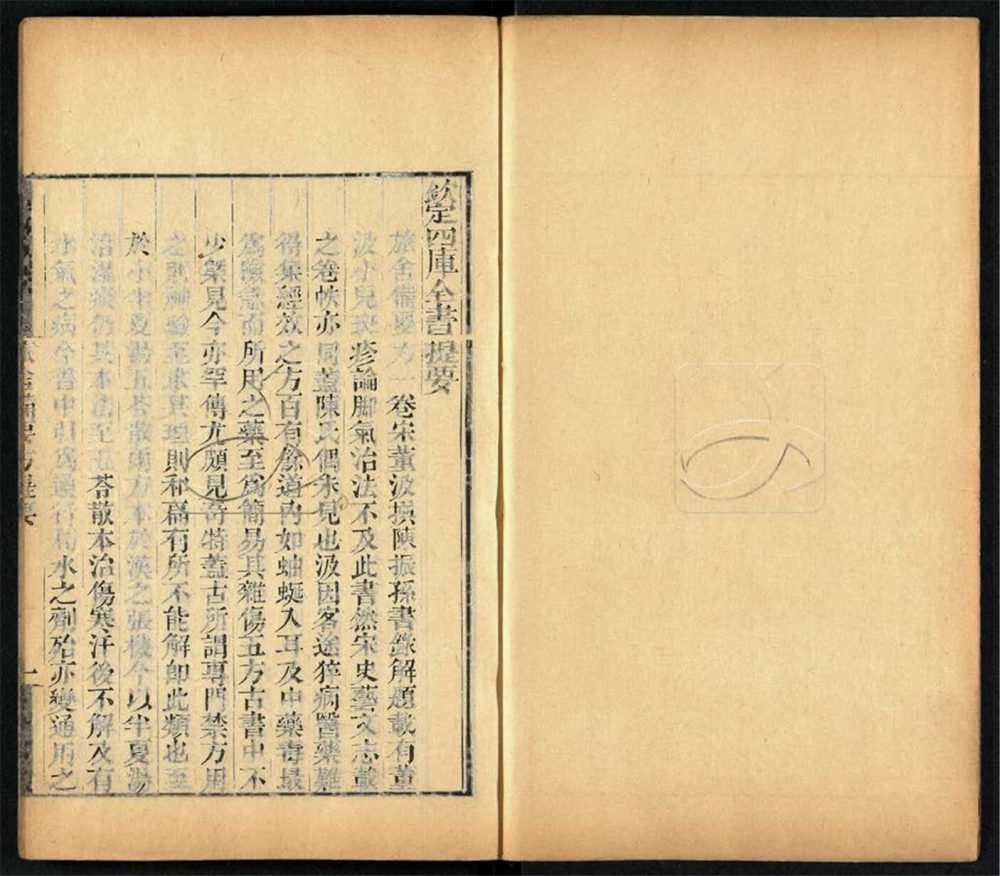 欽定四庫全書提要
旅舍備要方一卷宋董汲撰陳振孫書錄解題載有董
汲小兒斑疹論脚氣治法不及此書然宋史藝文志載
之卷帙亦同蓋陳氏偶未見也汲因客途猝病醫藥難
得集經效之方百有餘道內如蚰蜒入耳及中藥毒最
爲險急而所用之藥至爲簡易其雜傷五方古書中不
少槩見今亦罕傳尤頗見奇特蓋古所謂專門禁方用
之則神驗至求其理則和扁有所不能解卽此類也至
於小半夏湯五苓散兩方本於漢之張機今以半夏湯
治濕痰仍其本法至五苓散本治傷寒汗後不解及有
水氣之病今書中引爲通行利水之劑殆亦變通用之
旅舍備要方提要
一